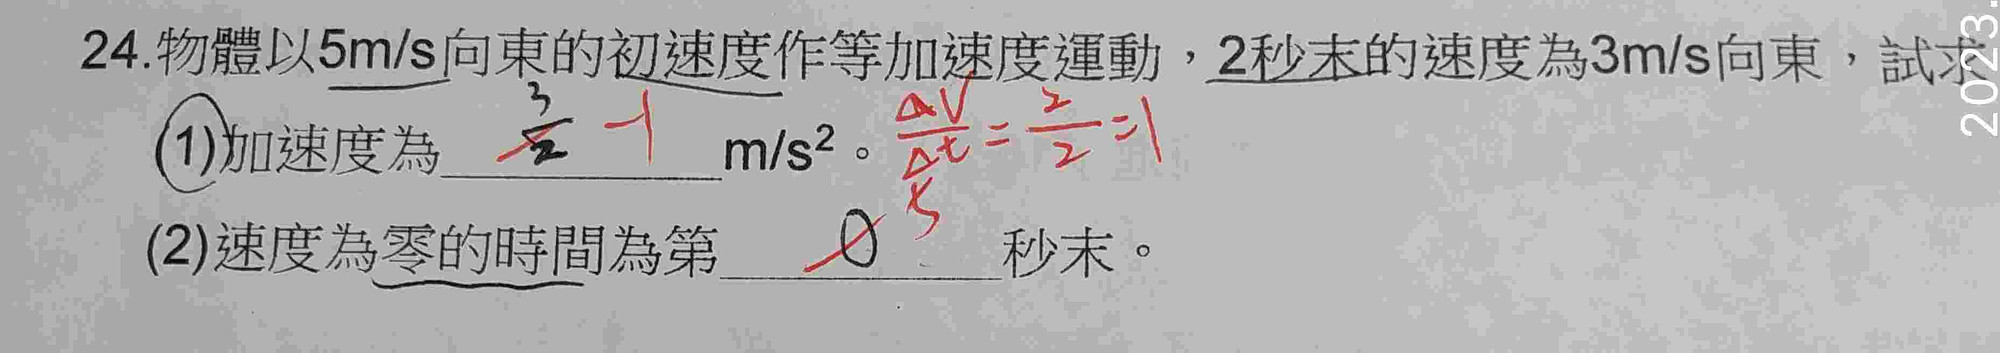 24.物體以5m/s向東的初速度作等加速度運動，2秒末的速度為3m/s向東，試求
(1)加速度為 3/2 -1 m/s²。 ΔV/Δt = 2/2 = 1
(2)速度為零的時間為第 0 5 秒末。
2023.